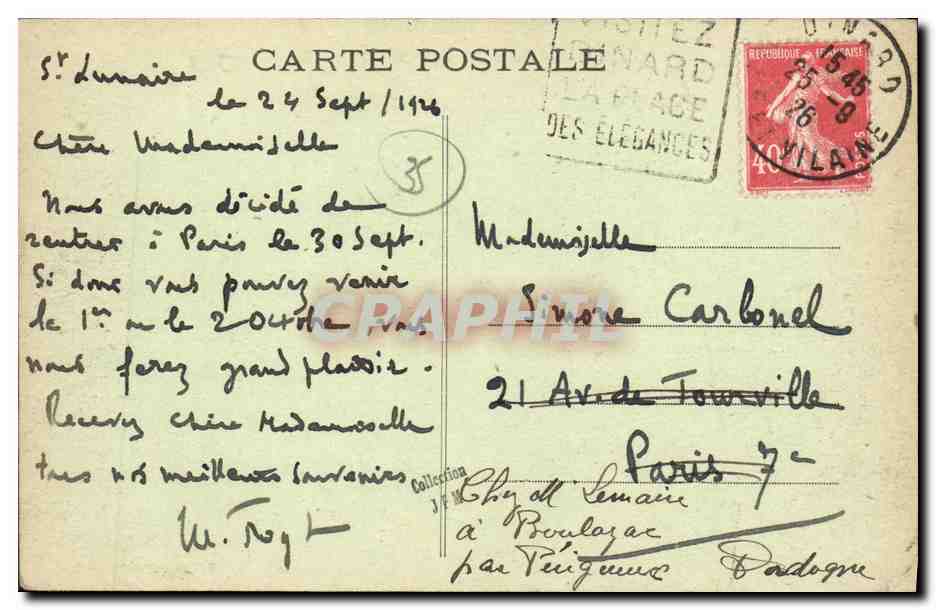 CARTE POSTALE
VISITEZ
DINARD
LA PLAGE
DES ÉLÉGANCES
REPUBLIQUE FRANÇAISE
40
DINARD
15 45
25 - 9
26
ET VILAINE
St Lunaire
le 24 Sept/1926
Chère Mademoiselle
35
Nous avons décidé de
rentrer à Paris le 30 Sept.
Si donc vous pouvez venir
le 1er ou le 2 Octobre vous
nous ferez grand plaisir.
Recevez Chère Mademoiselle
tous nos meilleurs souvenirs
Mademoiselle
Simone Carbonel
21 Av. de Tourville
Paris 7e
Chez Mr Lemaire
à Boulazac
par Périgueux Dordogne
Collection
J F M
CPAPHIL